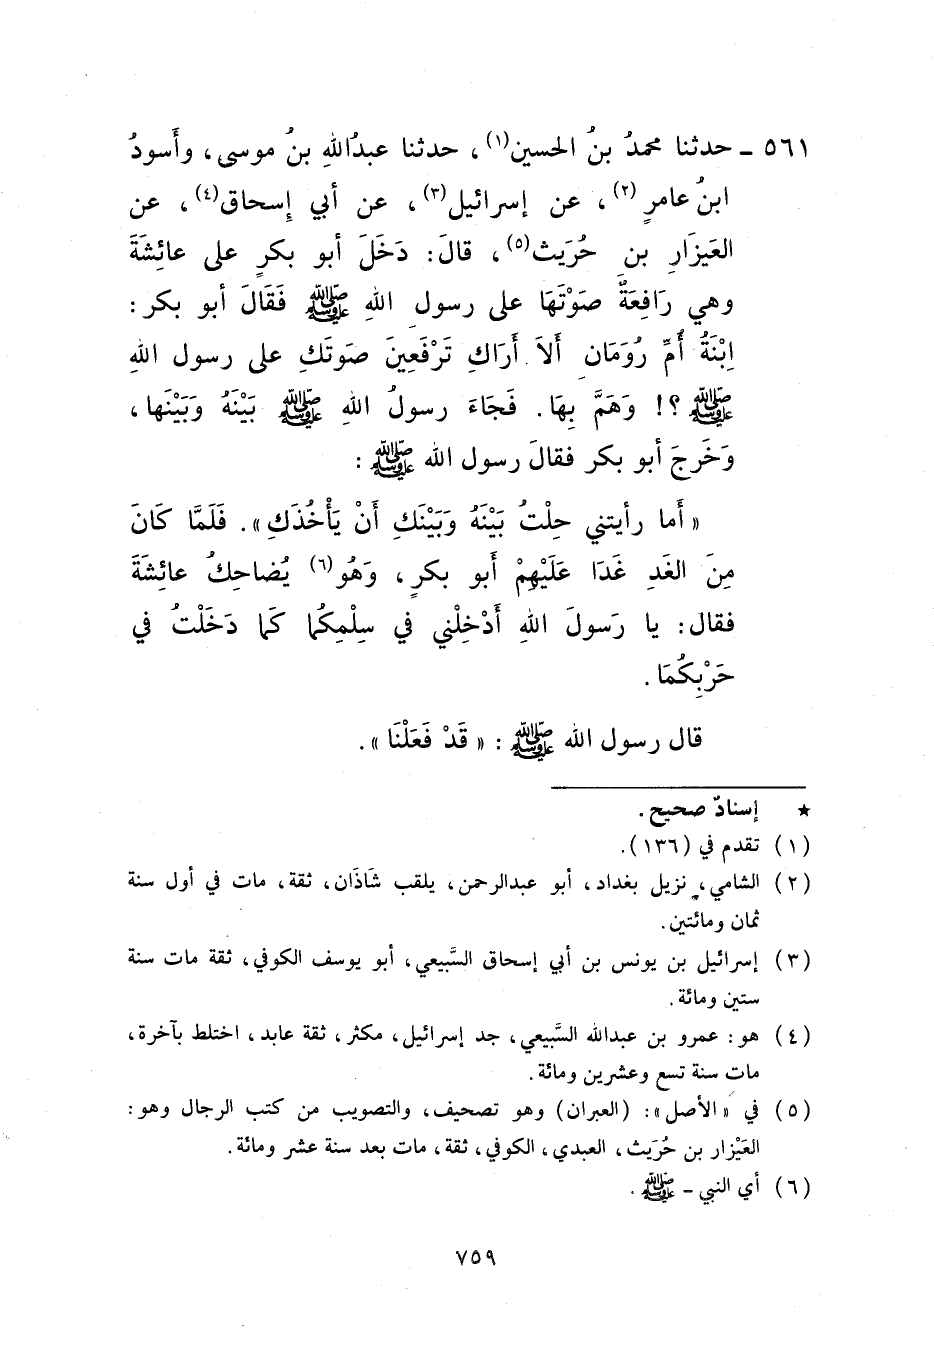 ٥٦١ ـ حدثنا محمدُ بنُ الحسين(١)، حدثنا عبدُاللهِ بنُ موسى، وأَسودُ
ابنُ عامرٍ(٢)، عن إسرائيل(٣)، عن أبي إسحاق(٤)، عن
العَيزَارِ بن حُرَيث(٥)، قالَ: دَخَلَ أبو بكرٍ على عائِشَةَ
وهي رَافِعَةٌ صَوْتَهَا على رسولِ اللهِ ﷺ فَقَالَ أبو بكر:
اِبْنَةُ أُمِّ رُومَانِ أَلاَ أَرَاكِ تَرْفَعِينَ صَوتَكِ على رسول اللهِ
ﷺ؟! وَهَمَّ بِهَا. فَجَاءَ رسولُ اللهِ ﷺ بَيْنَهُ وَبَيْنَها،
وَخَرجَ أبو بكر فقالَ رسول الله ﷺ:
«أَما رأيتني حِلْتُ بَيْنَهُ وَبَيْنَكِ أَنْ يَأْخُذَكِ». فَلَمَّا كَانَ
مِنَ الغَدِ غَدَا عَلَيْهِمْ أَبو بكرٍ، وَهُو(٦) يُضاحِكُ عائِشَةَ
فقال: يا رَسولَ اللهِ أَدْخِلْني في سِلْمِكُما كَما دَخَلْتُ في
حَرْبِكُمَا.
قال رسول الله ﷺ: «قَدْ فَعَلْنَا».
★ إسنادٌ صحيح.
(١) تقدم في (١٣٦).
(٢) الشامي، نزيل بغداد، أبو عبدالرحمن، يلقب شَاذَان، ثقة، مات في أول سنة
ثمان ومائتين.
(٣) إسرائيل بن يونس بن أبي إسحاق السَّبيعي، أبو يوسف الكوفي، ثقة مات سنة
ستين ومائة.
(٤) هو: عمرو بن عبدالله السَّبيعي، جد إسرائيل، مكثر، ثقة عابد، اختلط بآخرة،
مات سنة تسع وعشرين ومائة.
(٥) في «الأصل»: (العبران) وهو تصحيف، والتصويب من كتب الرجال وهو:
العَيْزار بن حُرَيث، العبدي، الكوفي، ثقة، مات بعد سنة عشر ومائة.
(٦) أي النبي ـ ﷺ.
٧٥٩